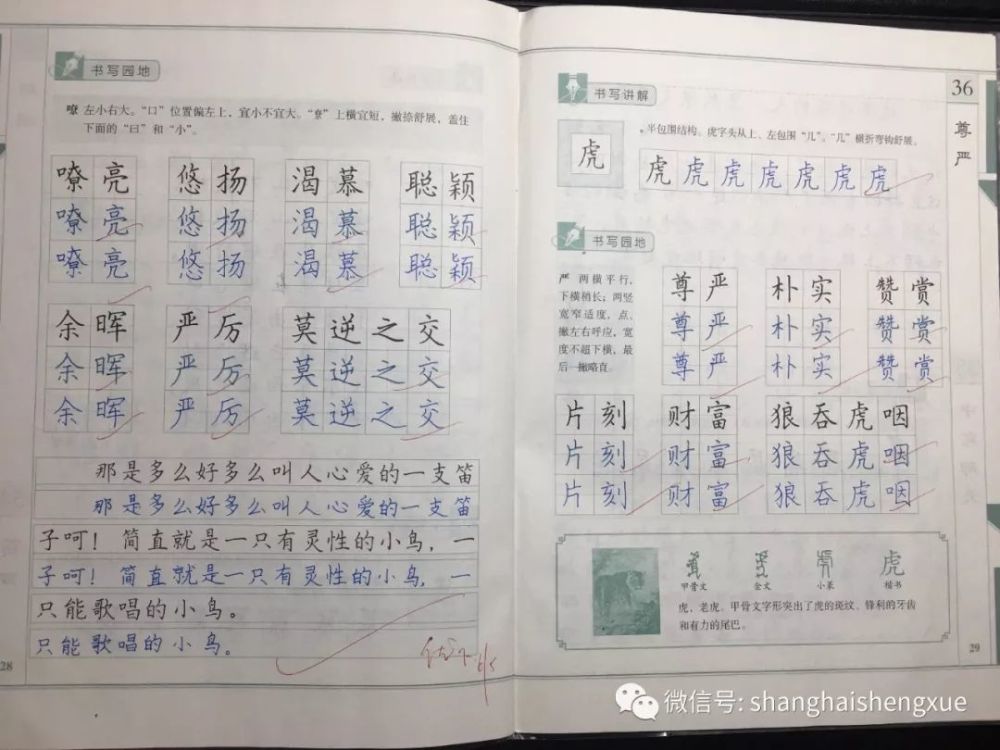 书写园地
嘹 左小右大。“口”位置偏左上，宜小不宜大。“尞”上横宜短，撇捺舒展，盖住
下面的“日”和“小”。
嘹亮 悠扬 渴慕 聪颖
嘹亮 悠扬 渴慕 聪颖
嘹亮 悠扬 渴慕 聪颖
余晖 严厉 莫逆之交
余晖 严厉 莫逆之交
余晖 严厉 莫逆之交
那是多么好多么叫人心爱的一支笛
那是多么好多么叫人心爱的一支笛
子呵！简直就是一只有灵性的小鸟，一
子呵！简直就是一只有灵性的小鸟，一
只能歌唱的小鸟。
只能歌唱的小鸟。
28
书写讲解
36
尊严
虎
半包围结构。虎字头从上、左包围“几”。“几”横折弯钩舒展。
虎虎虎虎虎虎虎
书写园地
严 两横平行，
下横稍长；两竖
宽窄适度，点、
撇左右呼应，宽
度不超下横，最
后一撇略直。
尊严 朴实 赞赏
尊严 朴实 赞赏
尊严 朴实 赞赏
片刻 财富 狼吞虎咽
片刻 财富 狼吞虎咽
片刻 财富 狼吞虎咽
甲骨文 金文 小篆 楷书
虎
虎，老虎。甲骨文字形突出了虎的斑纹、锋利的牙齿
和有力的尾巴。
29
微信号: shanghaishengxue